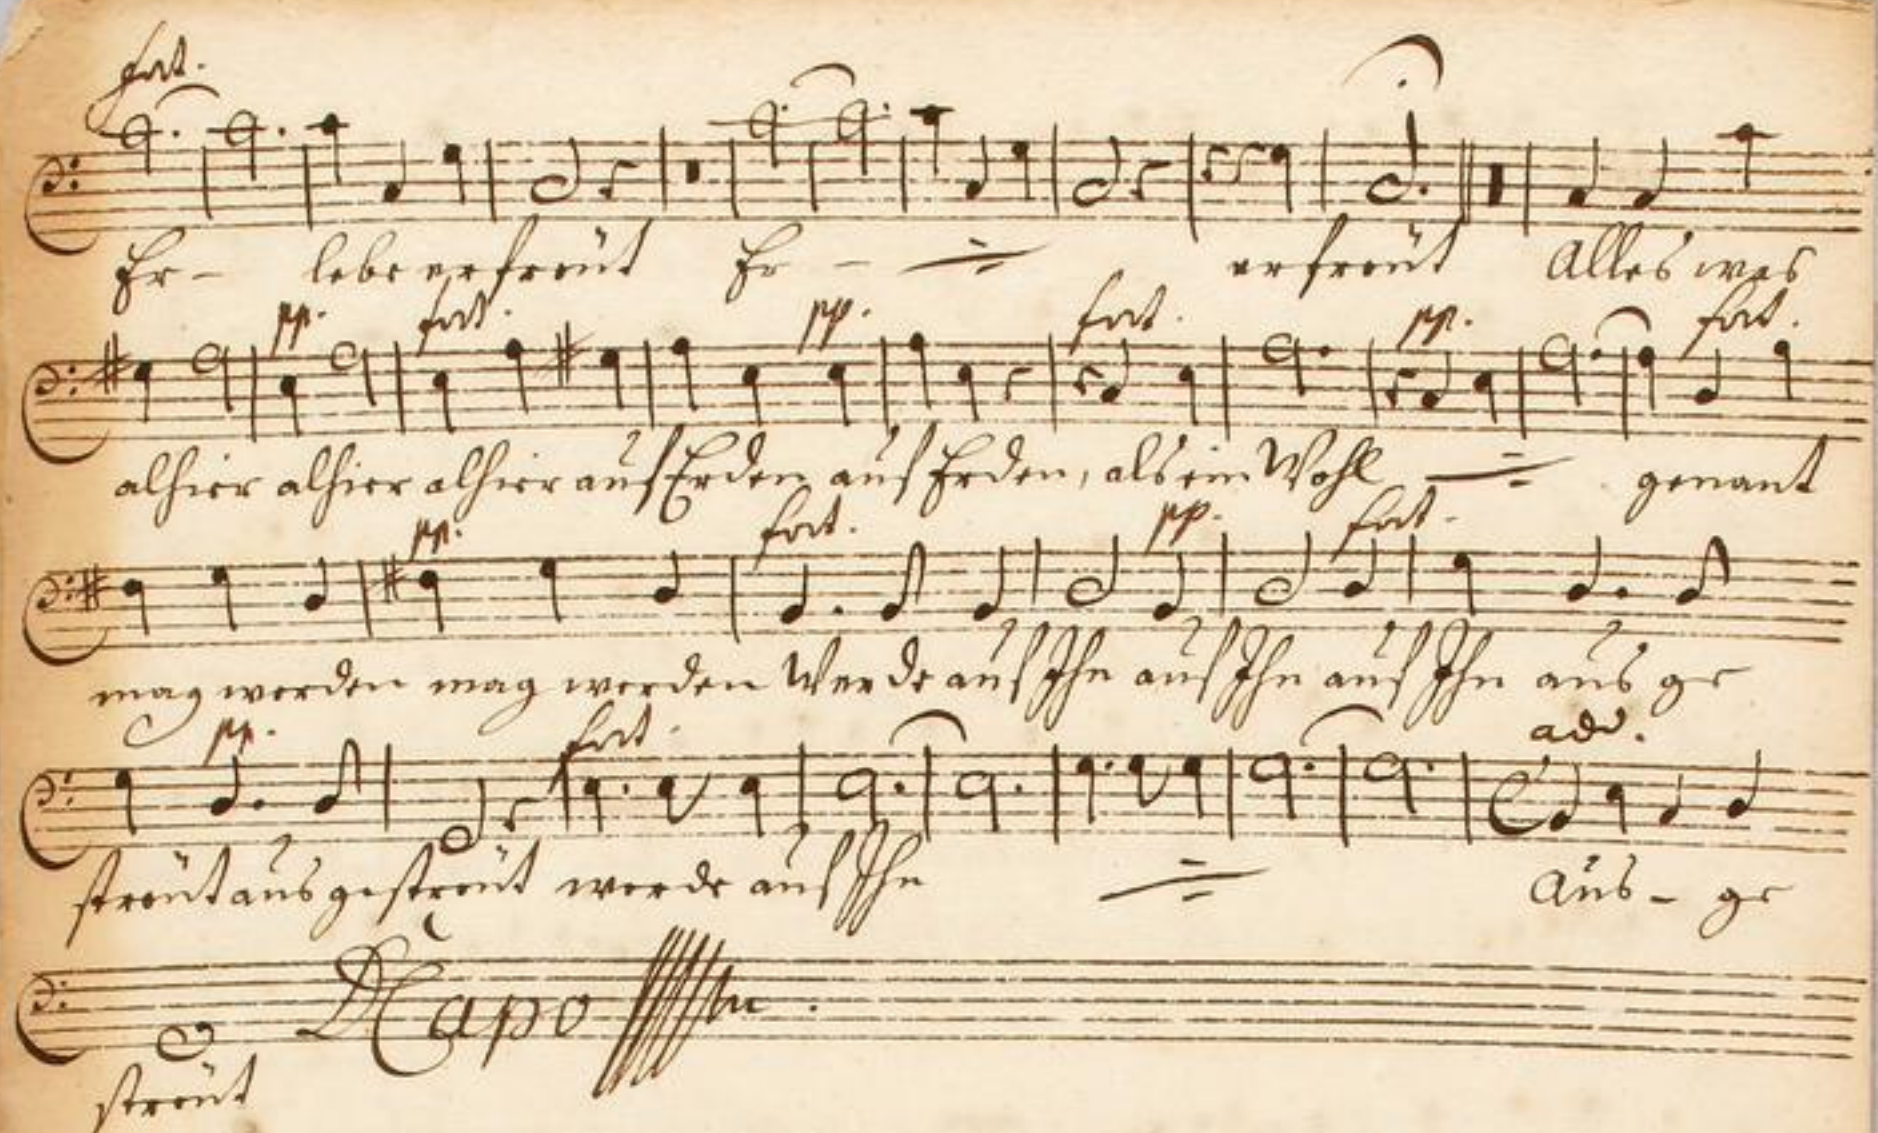 fort.
Er- lebe erfreüt Er - erfreüt Alles was
pp. fort. pp. fort. pp. fort.
alhier alhier alhier auf Erden auf Erden, als ein Wohl genant
pp. fort. pp. fort.
mag werden mag werden Werde auf Ihn auf Ihn auf Ihn aus ge
pp. fort. add.
streüt aus gestreüt werde auf Ihn Aus- ge
D Capo
streüt